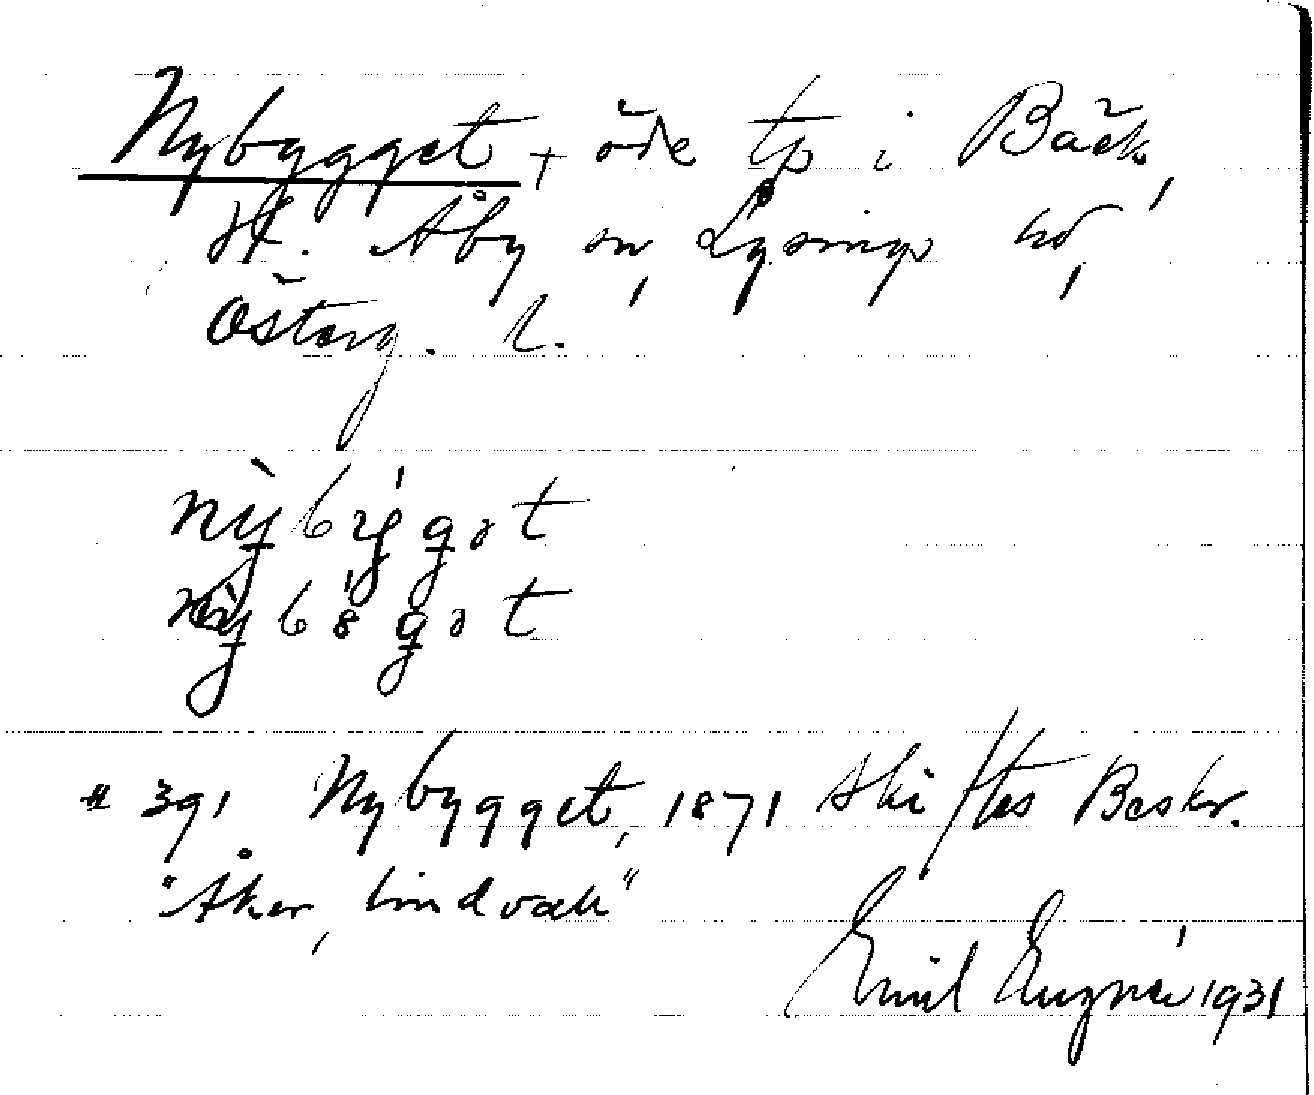 Nybygget + öde tp i Bäck,
H. Åby sn, Lysings hd,
Österg. l.
nỳbýgət
nỳbǿgət
" 391 Nybygget, 1871 Skiftes Beskr.
"Åker, lindvall"
Emil 1931